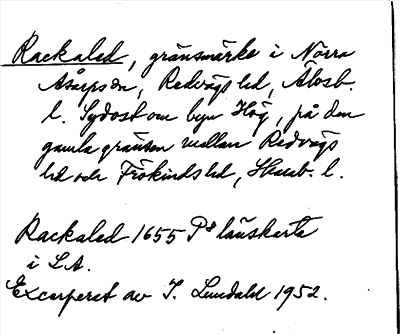 Rackaled, gränsmärke i Norra
Åsarps sn, Redvägs hd, Älvsb.
l. Sydost om byn Hög, på den
gamla gränsen mellan Redvägs
hd och Frökinds hd, Skarab. l.
Rackaled 1655 Ps länskarta
i LA.
Excerperat av I. Lundahl 1952.